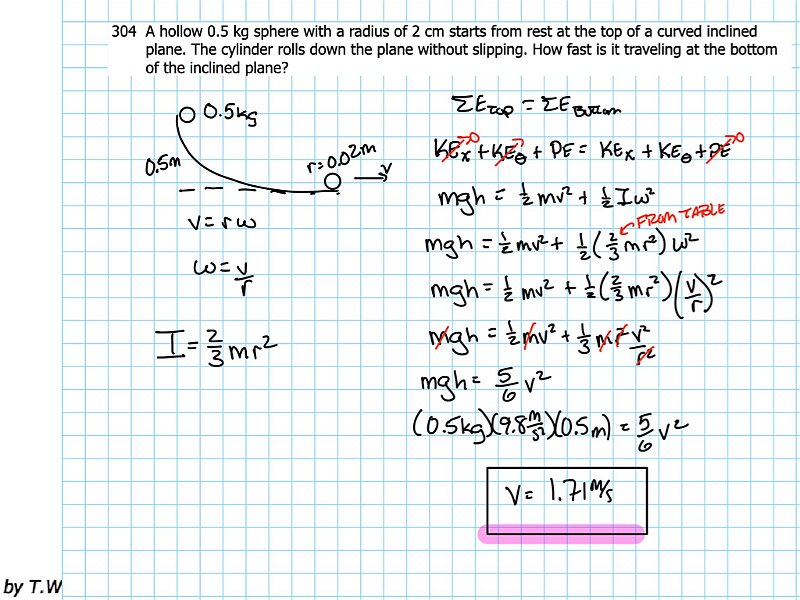 304 A hollow 0.5 kg sphere with a radius of 2 cm starts from rest at the top of a curved inclined
plane. The cylinder rolls down the plane without slipping. How fast is it traveling at the bottom
of the inclined plane?
ΣE_TOP = ΣE_BOTTOM
0.5kg
0.5m
r=0.02m
v
KE_x→0 + KE_θ→0 + PE = KE_x + KE_θ + PE→0
mgh = 1/2 mv² + 1/2 Iω²
FROM TABLE
v = rω
mgh = 1/2 mv² + 1/2 (2/3 mr²) ω²
ω = v/r
mgh = 1/2 mv² + 1/2 (2/3 mr²)(v/r)²
I = 2/3 mr²
mgh = 1/2 mv² + 1/3 mr² v²/r²
mgh = 5/6 v²
(0.5kg)(9.8 m/s²)(0.5m) = 5/6 v²
V = 1.71 m/s
by T.W